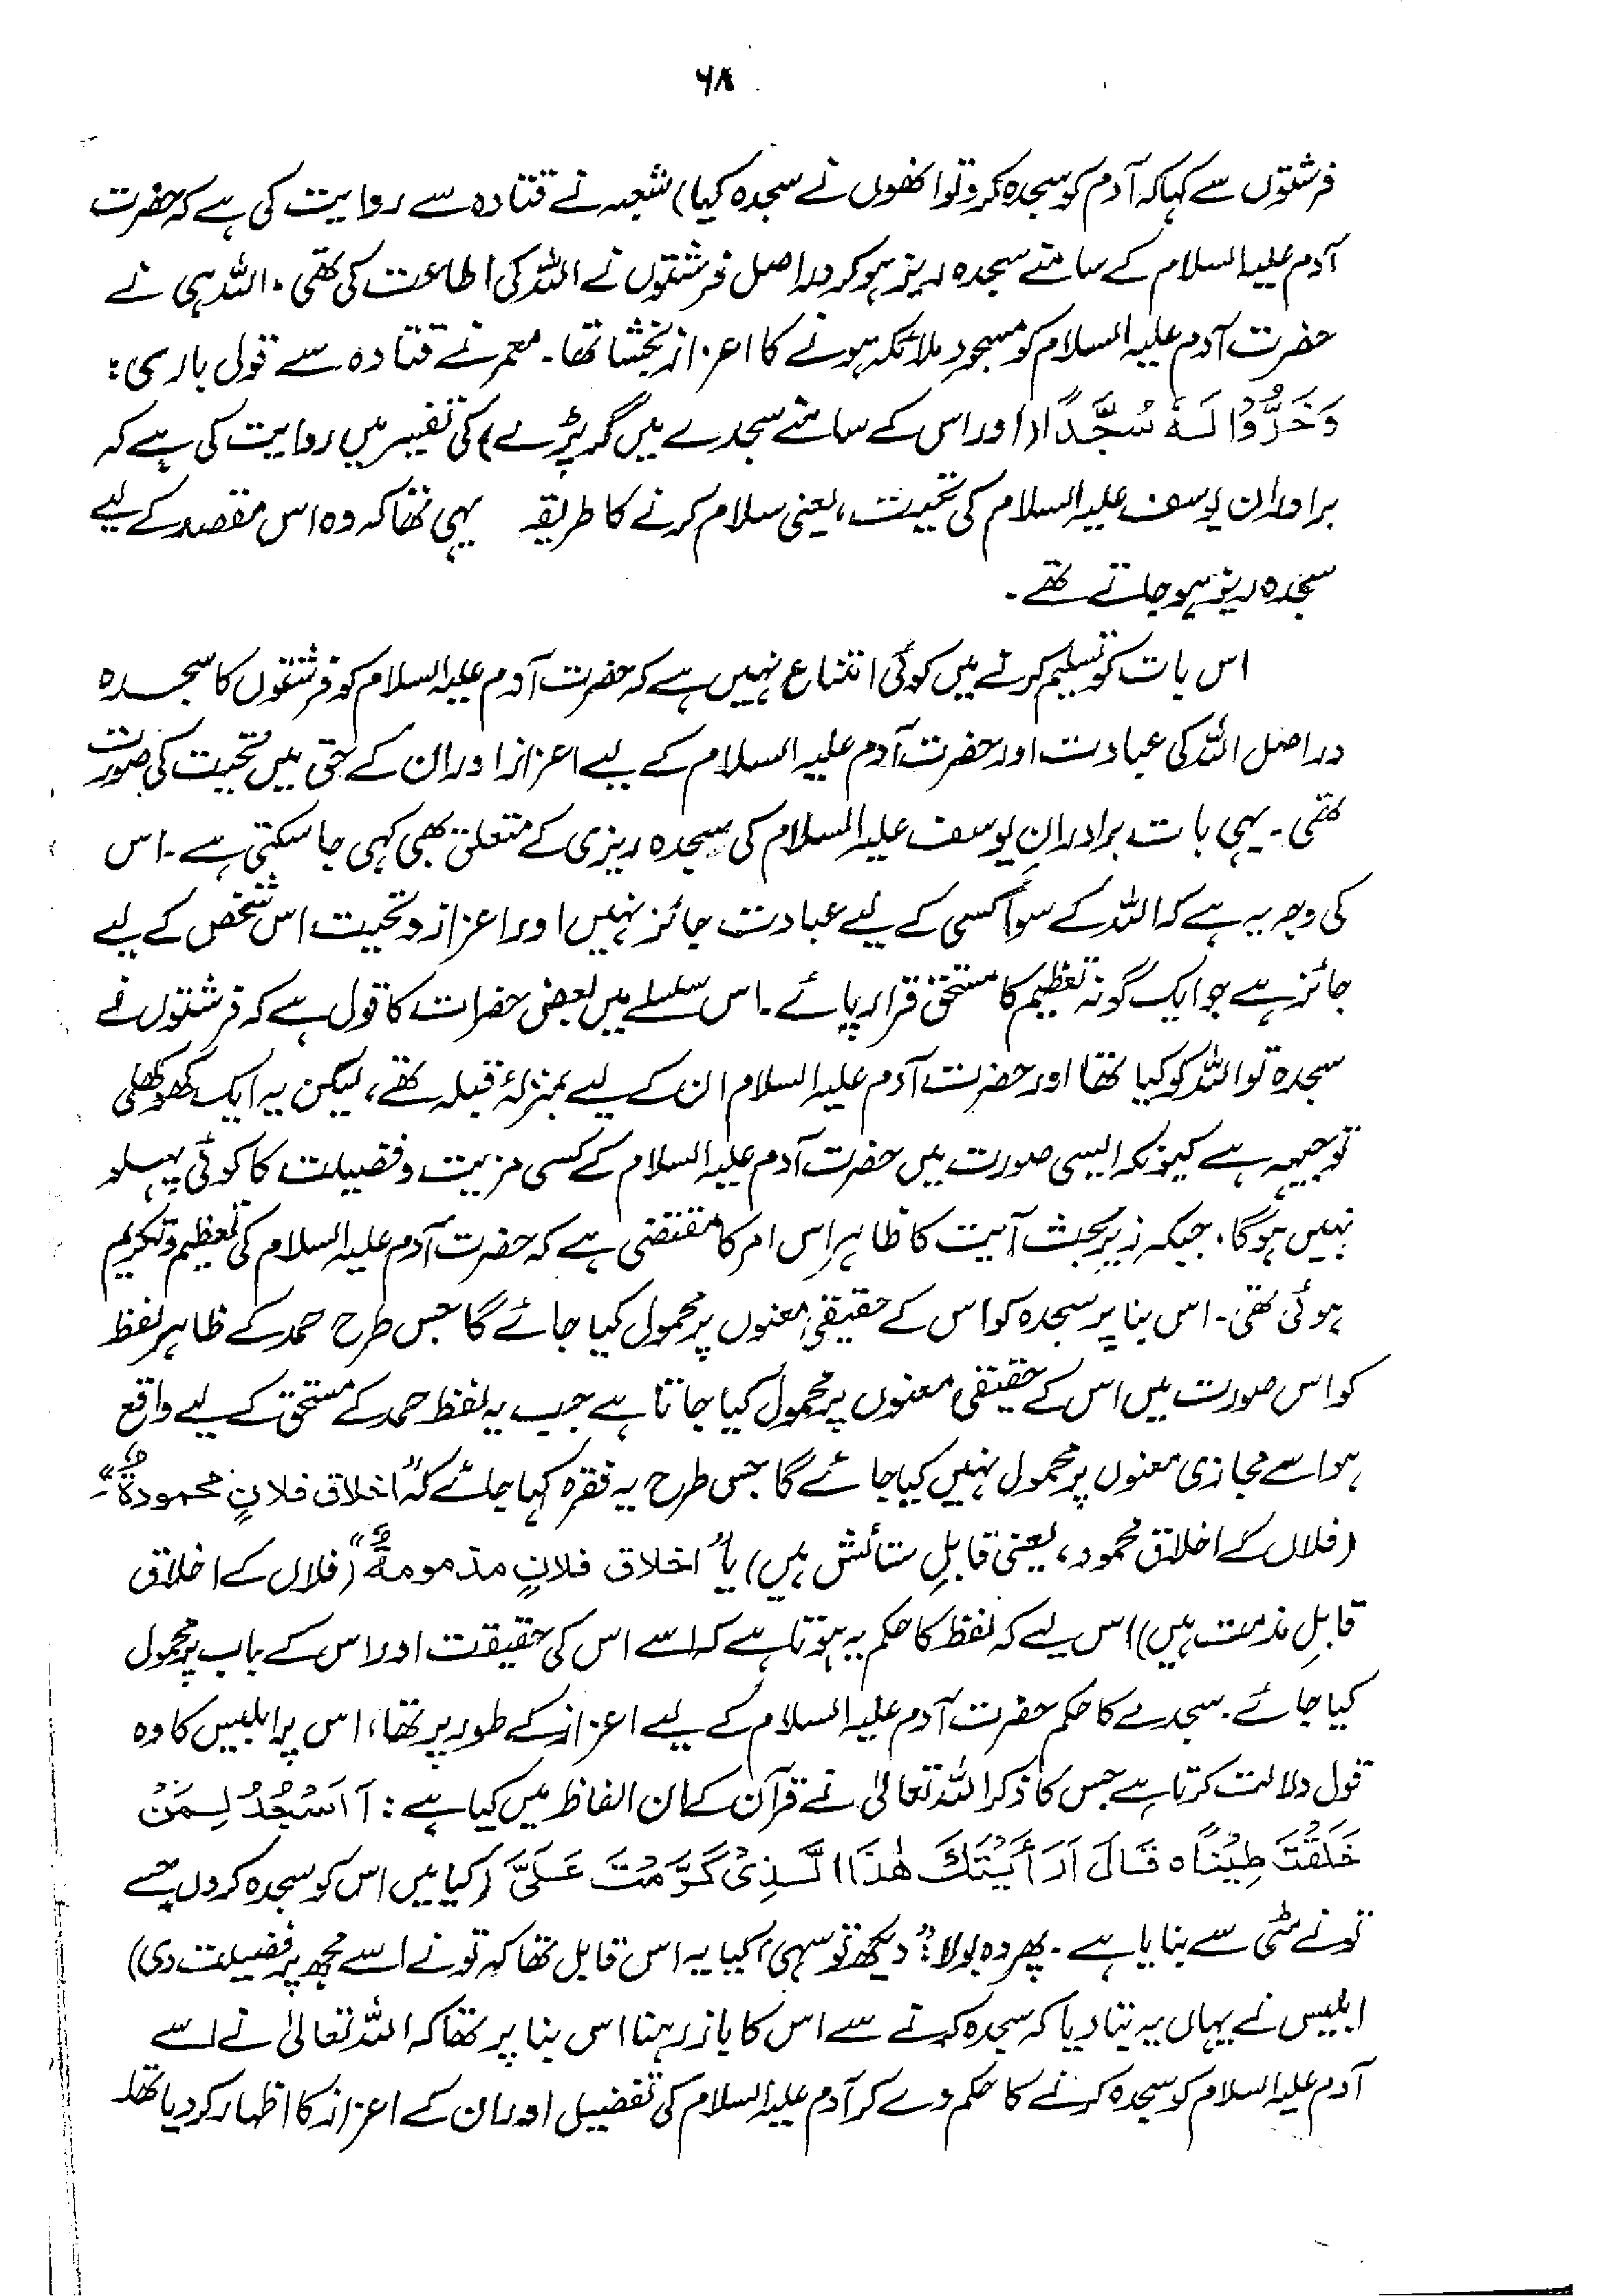 ۶۸
فرشتوں سے کہا کہ آدم کو سجدہ کرو تو انھوں نے سجدہ کیا) شعبہ نے قتادہ سے روایت کی ہے کہ حضرت
آدم علیہ السلام کے سامنے سجدہ ریز ہو کر دراصل فرشتوں نے اللہ کی اطاعت کی تھی۔ اللہ ہی نے
حضرت آدم علیہ السلام کو مسجودِ ملائکہ ہونے کا اعزاز بخشا تھا۔ معمر نے قتادہ سے قول باری:
وَخَرُّوْا لَـهٗ سُجَّدًا (اور اس کے سامنے سجدے میں گر پڑے) کی تفسیر میں روایت کی ہے کہ
برادران یوسف علیہ السلام کی تحیت، یعنی سلام کرنے کا طریقہ یہی تھا کہ وہ اس مقصد کے لیے
سجدہ ریز ہو جاتے تھے۔
اس بات کو تسلیم کرنے میں کوئی امتناع نہیں ہے کہ حضرت آدم علیہ السلام کو فرشتوں کا سجدہ
دراصل اللہ کی عبادت اور حضرت آدم علیہ السلام کے لیے اعزاز اور ان کے حق میں تحیت کی صورت
تھی۔ یہی بات برادرانِ یوسف علیہ السلام کی سجدہ ریزی کے متعلق بھی کہی جا سکتی ہے۔ اس
کی وجہ یہ ہے کہ اللہ کے سوا کسی کے لیے عبادت جائز نہیں اور اعزاز و تحیت اس شخص کے لیے
جائز ہے جو ایک گونہ تعظیم کا مستحق قرار پائے۔ اس سلسلے میں بعض حضرات کا قول ہے کہ فرشتوں نے
سجدہ تو اللہ کو کیا تھا اور حضرت آدم علیہ السلام ان کے لیے بمنزلۂ قبلہ تھے، لیکن یہ ایک کھوکھلی
توجیہہ ہے کیونکہ ایسی صورت میں حضرت آدم علیہ السلام کے کسی مزیت و فضیلت کا کوئی پہلو
نہیں ہوگا۔ جبکہ زیرِ بحث آیت کا ظاہر اِس امر کا مقتضی ہے کہ حضرت آدم علیہ السلام کی تعظیم و تکریم
ہوئی تھی۔ اس بنا پر سجدہ کو اس کے حقیقی معنوں پر محمول کیا جائے گا جس طرح حمد کے ظاہر لفظ
کو اس صورت میں اس کے حقیقی معنوں پر محمول کیا جاتا ہے جب یہ لفظ حمد کے مستحق کے لیے واقع
ہو اسے مجازی معنوں پر محمول نہیں کیا جائے گا جس طرح یہ فقرہ کہا جائے کہ "اخلاق فلانٍ محمودۃٌ"
(فلاں کے اخلاق محمود، یعنی قابلِ ستائش ہیں) یا "اخلاق فلانٍ مذمومۃٌ" (فلاں کے اخلاق
قابلِ مذمت ہیں) اس لیے کہ لفظ کا حکم یہ ہوتا ہے کہ اسے اس کی حقیقت اور اس کے باب پر محمول
کیا جائے۔ سجدے کا حکم حضرت آدم علیہ السلام کے لیے اعزاز کے طور پر تھا، اس پر ابلیس کا وہ
قول دلالت کرتا ہے جس کا ذکر اللہ تعالیٰ نے قرآن کے ان الفاظ میں کیا ہے: آ اَسْجُدُ لِمَنْ
خَلَقْتَ طِيْنًا ہ قَالَ اَرَأَيْتَكَ هٰذَا الَّـذِىْ كَرَّمْتَ عَـلَىَّ (کیا میں اس کو سجدہ کروں جسے
تونے مٹی سے بنایا ہے۔ پھر وہ بولا: "دیکھ تو سہی، کیا یہ اس قابل تھا کہ تونے اسے مجھ پر فضیلت دی)
ابلیس نے یہاں یہ بتا دیا کہ سجدہ کرنے سے اس کا باز رہنا اس بنا پر تھا کہ اللہ تعالیٰ نے اسے
آدم علیہ السلام کو سجدہ کرنے کا حکم دے کر آدم علیہ السلام کی تفضیل اور ان کے اعزاز کا اظہار کر دیا تھا۔